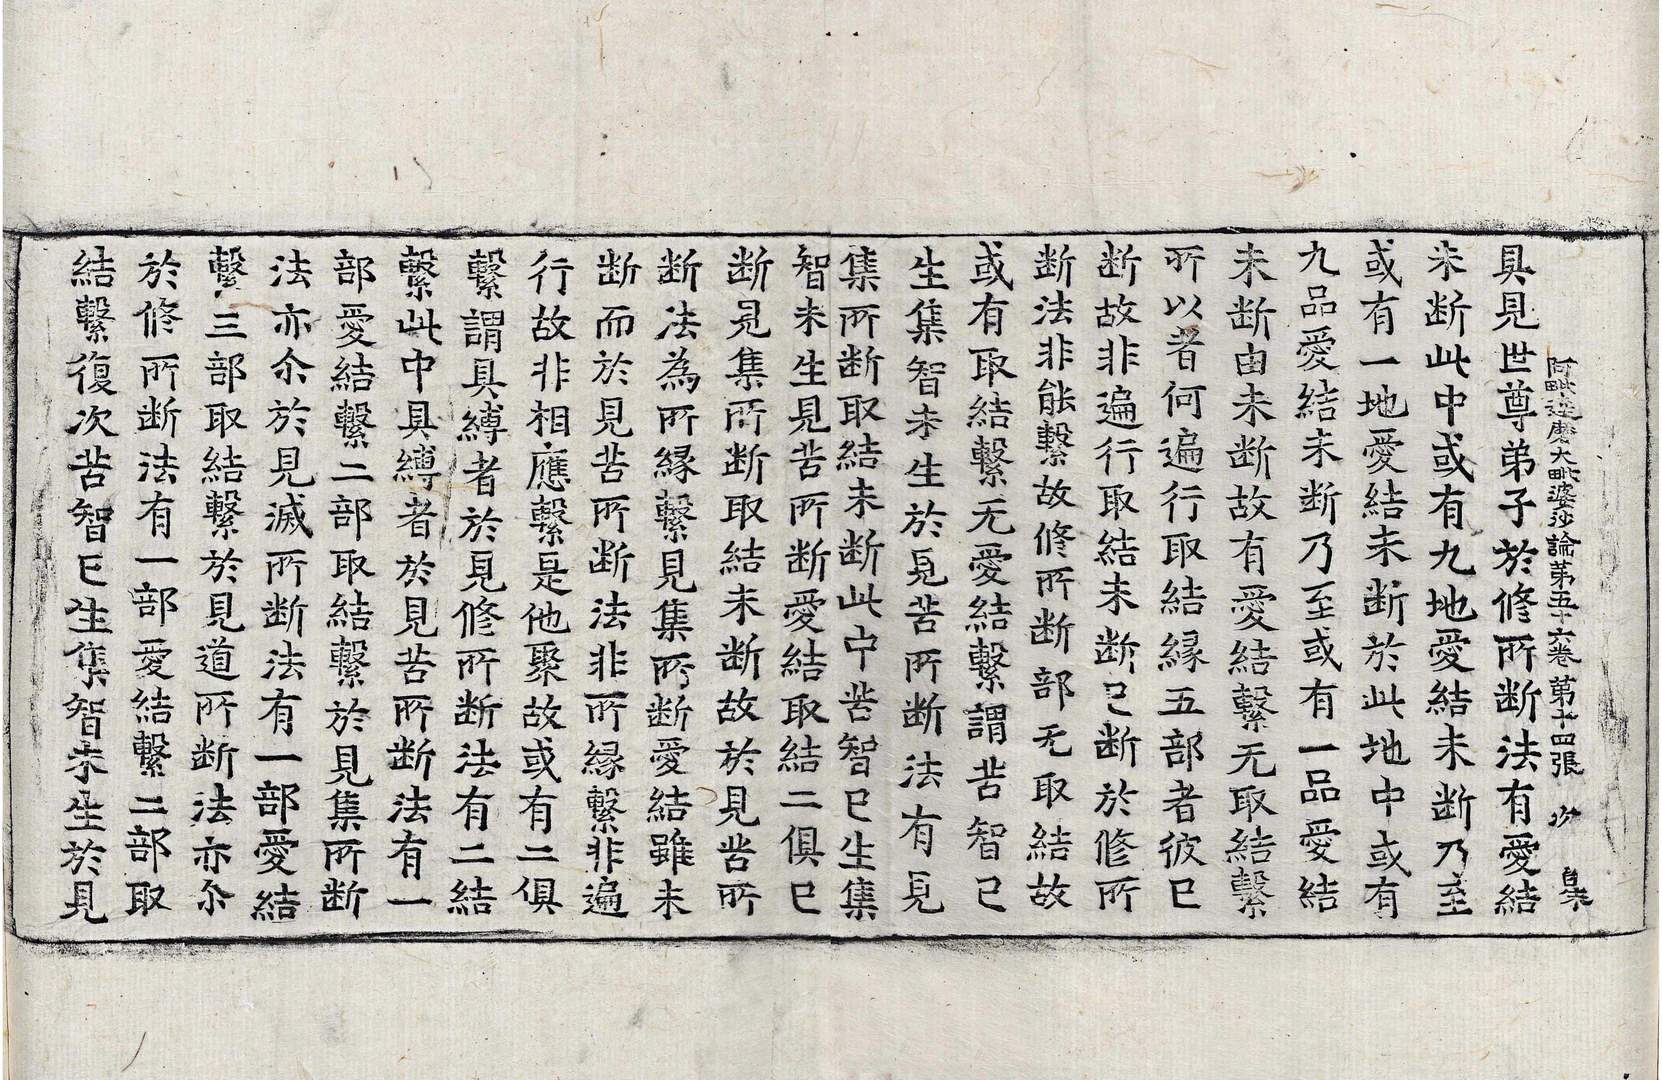 阿毗達磨大毗婆沙論第五十六卷 第十四張 次 自来
具見世尊弟子於修所断法有愛結
未断此中或有九地愛結未断乃至
或有一地愛結未断於此地中或有
九品愛結未断乃至或有一品愛結
未断由未断故有愛結繫无取結繫
所以者何遍行取結縁五部者彼已
断故非遍行取結未断已断於修所
断法非能繫故修所断部无取結故
或有取結繫无愛結繫謂苦智已
生集智未生於見苦所断法有見
集所断取結未断此中苦智已生集
智未生見苦所断愛結取結二俱已
断見集所断取結未断故於見苦所
断法為所縁繫見集所断愛結雖未
断而於見苦所断法非所縁繫非遍
行故非相應繫是他聚故或有二俱
繫謂具縛者於見修所断法有二結
繫此中具縛者於見苦所断法有一
部愛結繫二部取結繫於見集所断
法亦尒於見滅所断法有一部愛結
繫三部取結繫於見道所断法亦尒
於修所断法有一部愛結繫二部取
結繫復次苦智已生集智未生於見